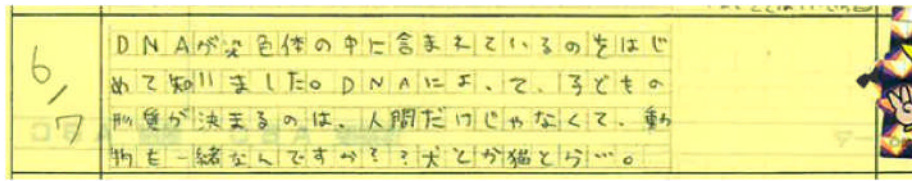 6/7
DNAが染色体の中に含まれているのをはじ
めて知りました。DNAによって、子どもの
形質が決まるのは、人間だけじゃなくて、動
物も一緒なんですか??犬とか猫とら…。